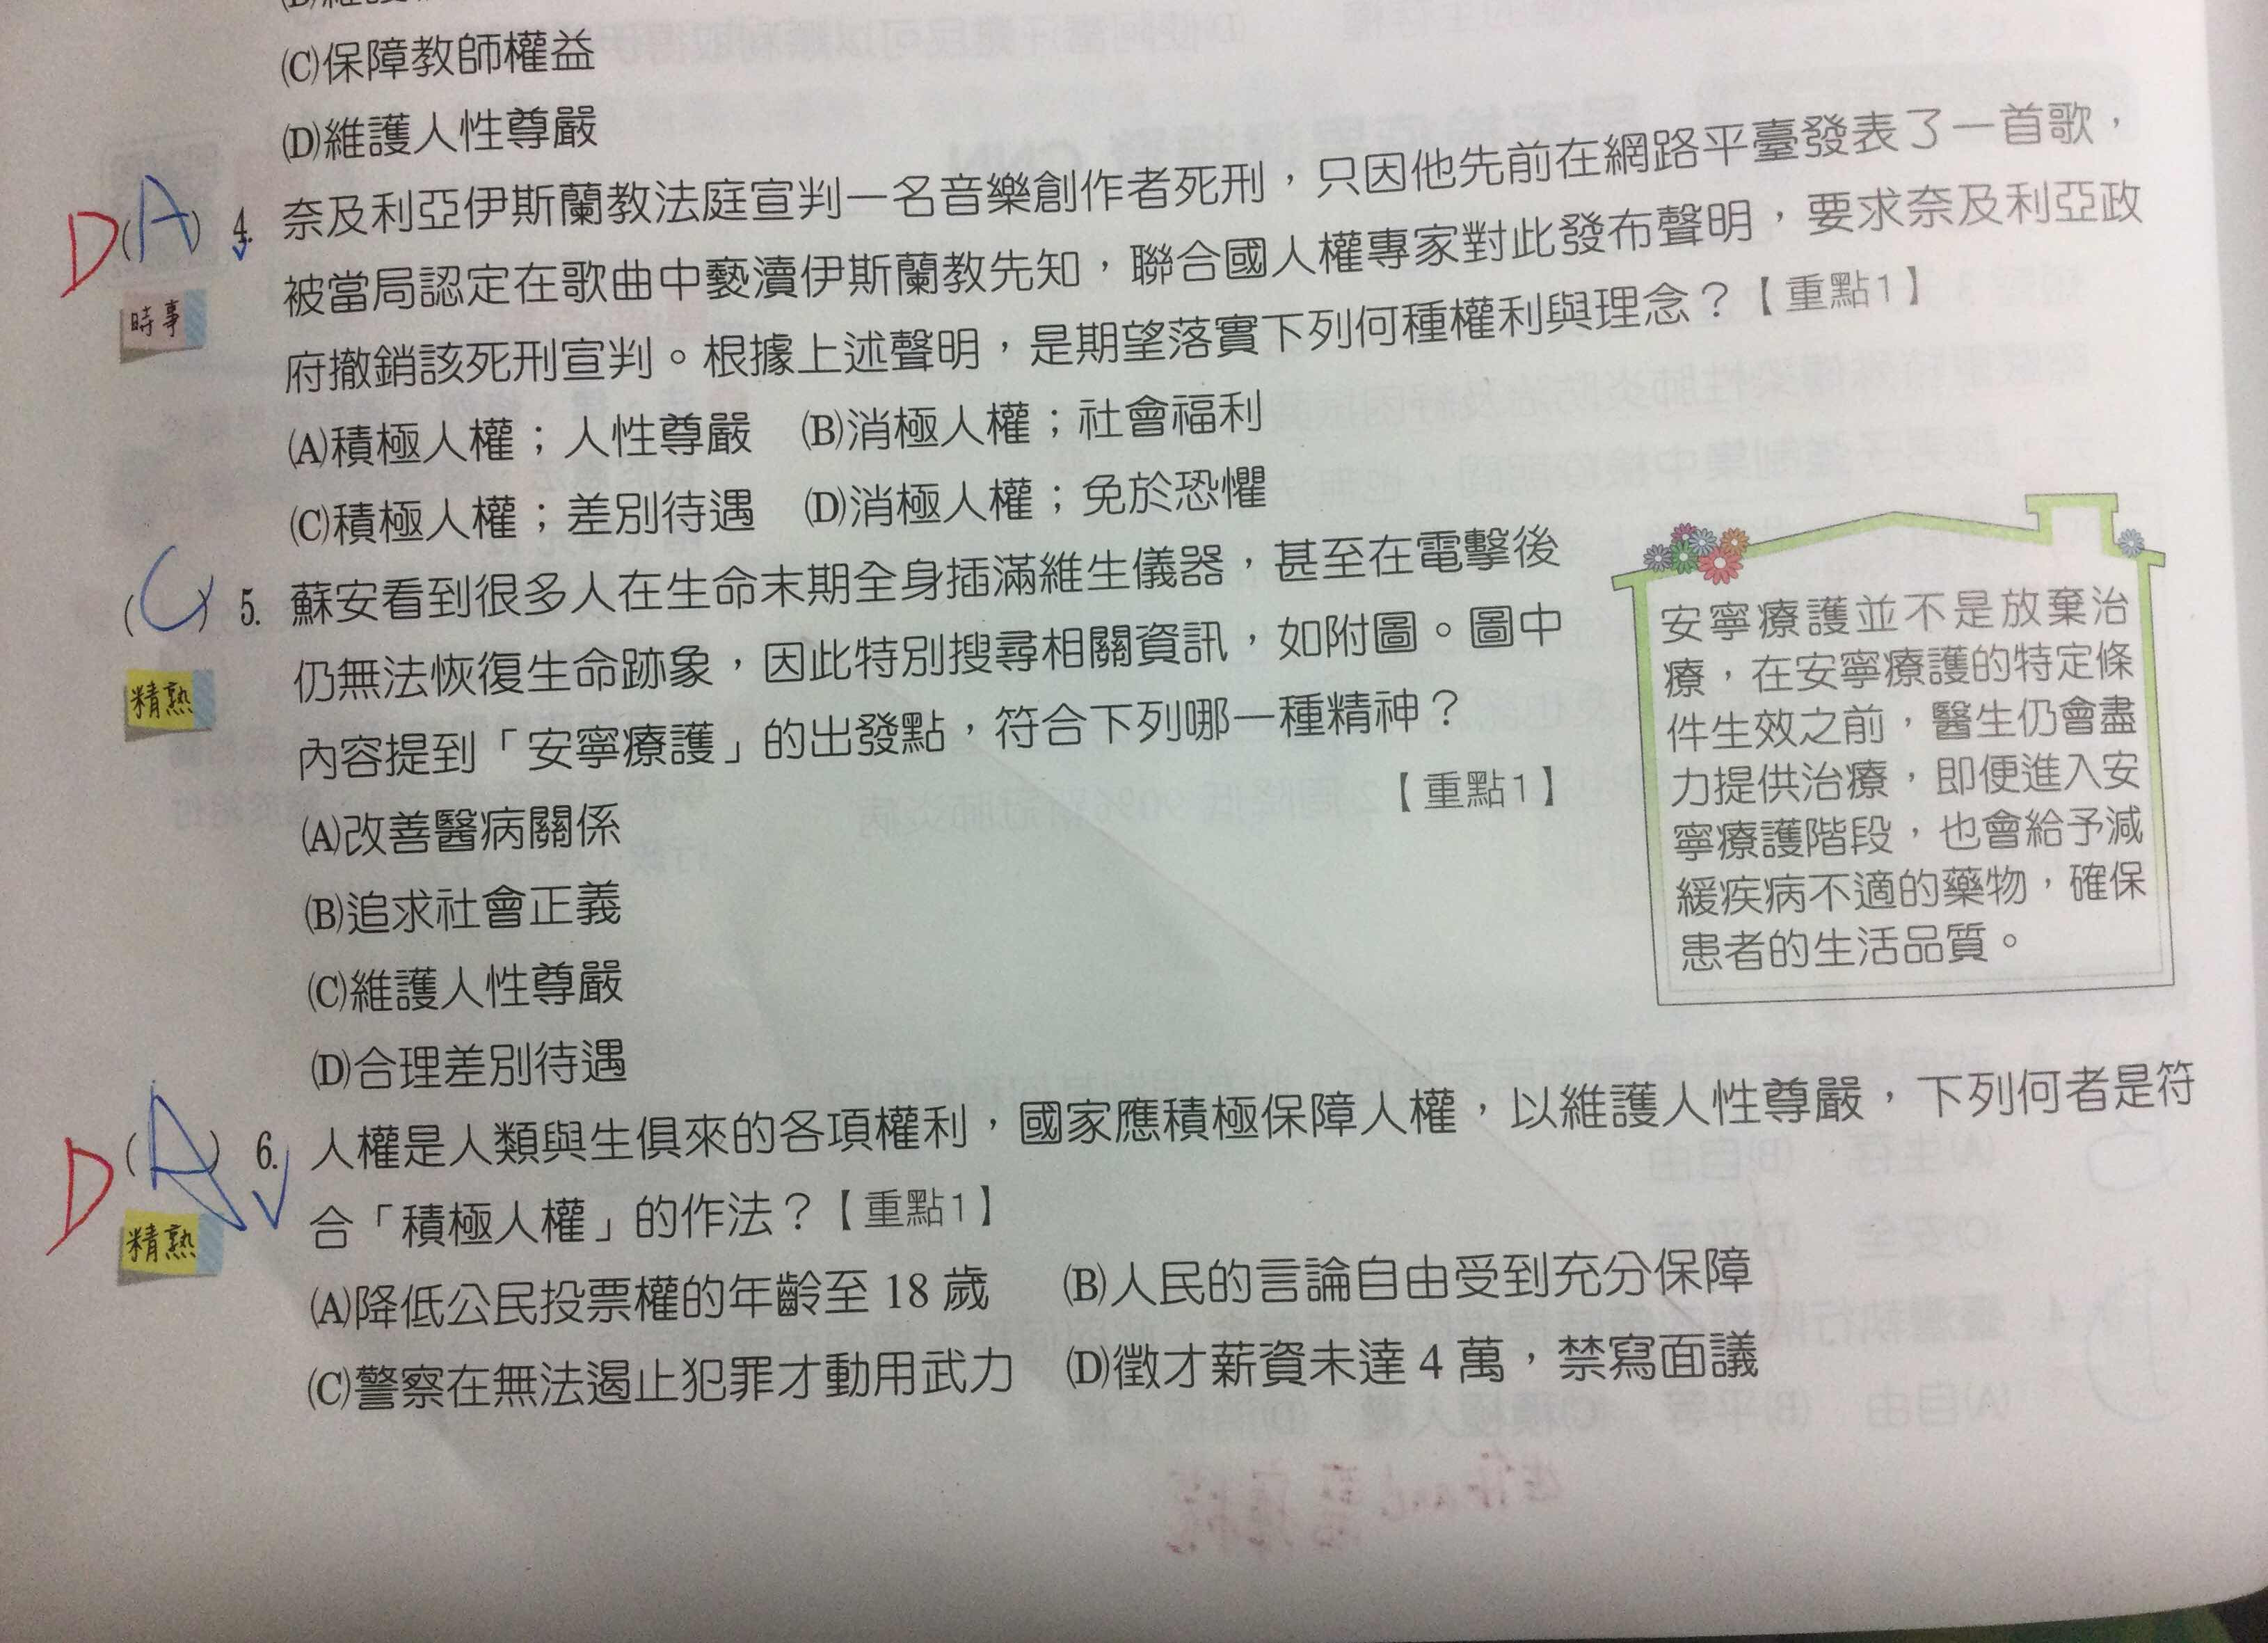 (C)保障教師權益
(D)維護人性尊嚴
D(A) 4. 奈及利亞伊斯蘭教法庭宣判一名音樂創作者死刑，只因他先前在網路平臺發表了一首歌，
時事
被當局認定在歌曲中褻瀆伊斯蘭教先知，聯合國人權專家對此發布聲明，要求奈及利亞政
府撤銷該死刑宣判。根據上述聲明，是期望落實下列何種權利與理念？【重點1】
(A)積極人權；人性尊嚴 (B)消極人權；社會福利
(C)積極人權；差別待遇 (D)消極人權；免於恐懼
(C) 5. 蘇安看到很多人在生命末期全身插滿維生儀器，甚至在電擊後
精熟
仍無法恢復生命跡象，因此特別搜尋相關資訊，如附圖。圖中
內容提到「安寧療護」的出發點，符合下列哪一種精神？
【重點1】
(A)改善醫病關係
(B)追求社會正義
(C)維護人性尊嚴
(D)合理差別待遇
安寧療護並不是放棄治
療，在安寧療護的特定條
件生效之前，醫生仍會盡
力提供治療，即便進入安
寧療護階段，也會給予減
緩疾病不適的藥物，確保
患者的生活品質。
D(A) 6. 人權是人類與生俱來的各項權利，國家應積極保障人權，以維護人性尊嚴，下列何者是符
精熟
合「積極人權」的作法？【重點1】
(A)降低公民投票權的年齡至 18 歲 (B)人民的言論自由受到充分保障
(C)警察在無法遏止犯罪才動用武力 (D)徵才薪資未達 4 萬，禁寫面議